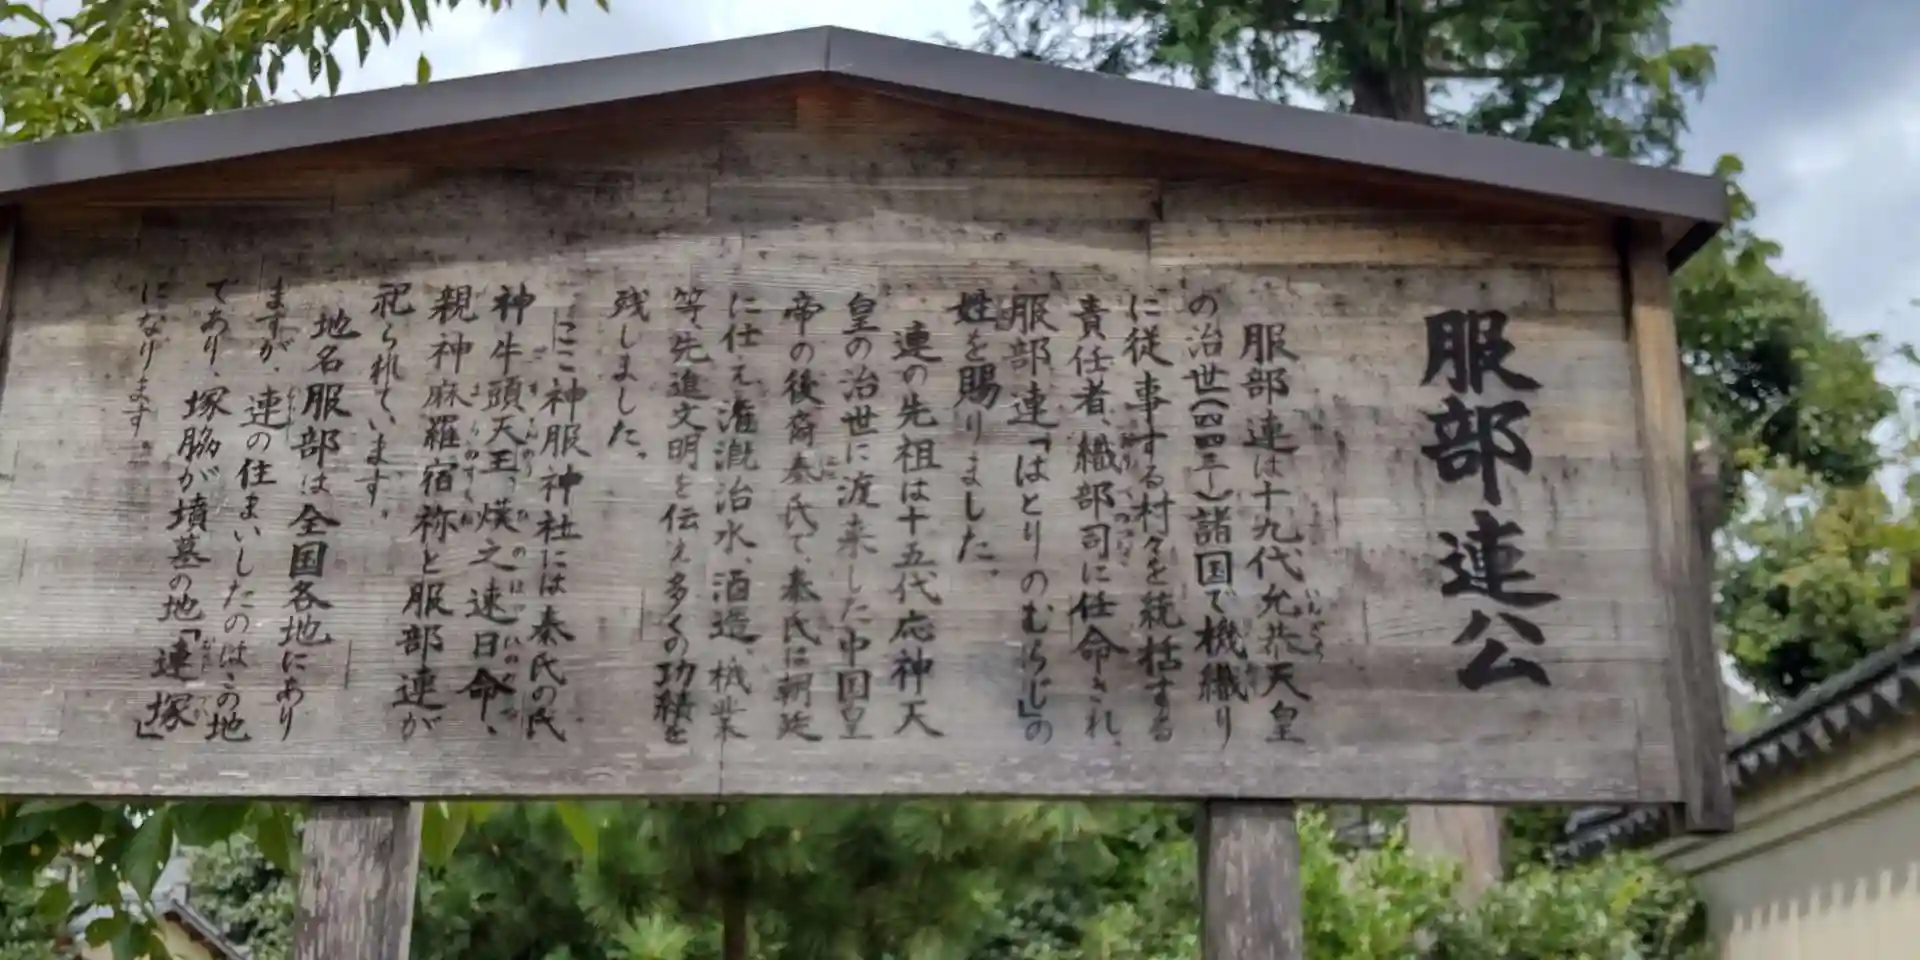 服部連公
服部連は十九代允恭天皇
の治世(四四三年)諸国で機織り
に従事する村々を統括する
責任者、織部司に任命され、
服部連「はとりのむらじ」の
姓を賜りました。
連の先祖は十五代応神天
皇の治世に渡来した中国皇
帝の後裔秦氏で、秦氏は朝廷
に仕え灌漑治水、酒造、機業
等、先進文明を伝え多くの功績を
残しました。
ここ神服神社には秦氏の氏
神牛頭天王、熯之速日命、
親神麻羅宿祢と服部連が
祀られています。
地名服部は全国各地にあり
ますが、連の住まいしたのはこの地
であり、塚脇が墳墓の地「連塚」
になります。